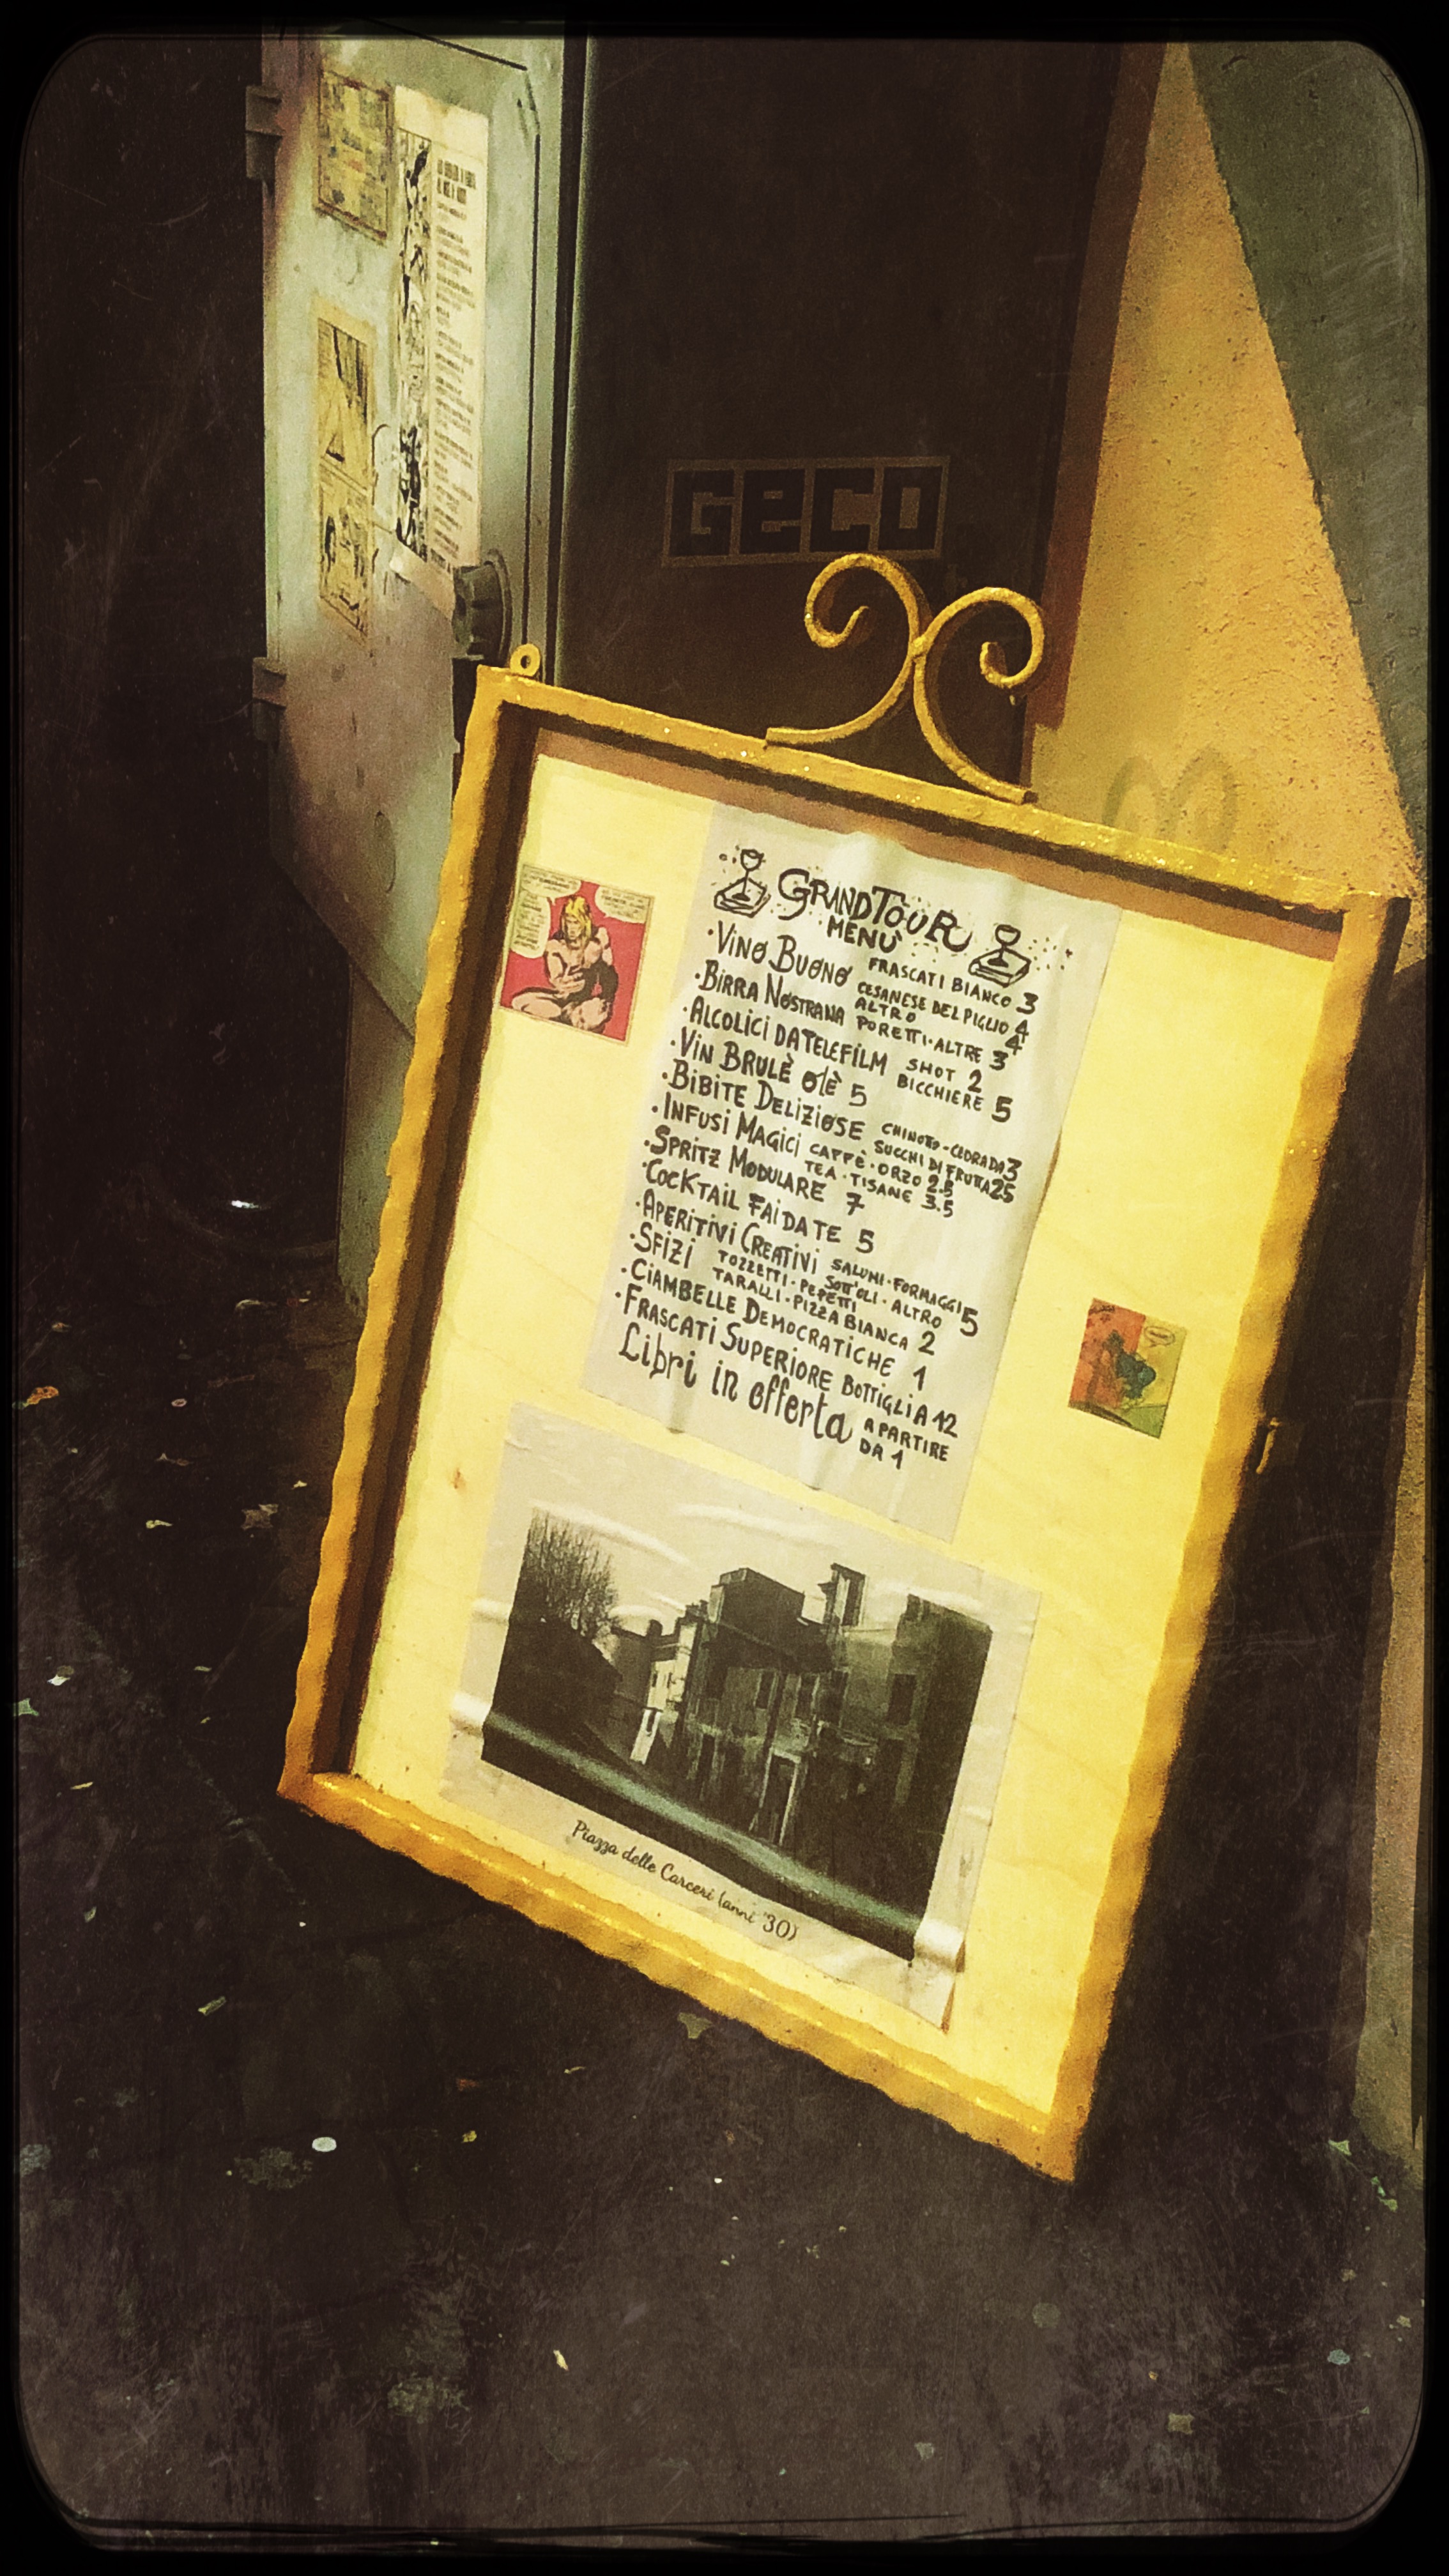 GECO
GRANDTOUR
MENÙ
·VINO BUONO FRASCATI BIANCO 3
CESANESE DEL PIGLIO 4
ALTRO 4
·BIRRA NOSTRANA PORETTI·ALTRE 3
·ALCOLICI DA TELEFILM SHOT 2
BICCHIERE 5
·VIN BRULÈ OLÈ 5
·BIBITE DELIZIOSE CHINOTTO-CEDRADA 3
SUCCHI DI FRUTTA 25
·INFUSI MAGICI CAFFÈ·ORZO 2.5
TEA·TISANE 3.5
·SPRITZ MODULARE 7
·COCKTAIL FAI DA TE 5
·APERITIVI CREATIVI SALUMI·FORMAGGI
SOTT'OLI·ALTRO 5
·SFIZI TOZZETTI·PEPETTI
TARALLI·PIZZA BIANCA 2
·CIAMBELLE DEMOCRATICHE 1
·FRASCATI SUPERIORE BOTTIGLIA 12
Libri in offerta A PARTIRE
DA 1
Piazza delle Carceri (anni '30)